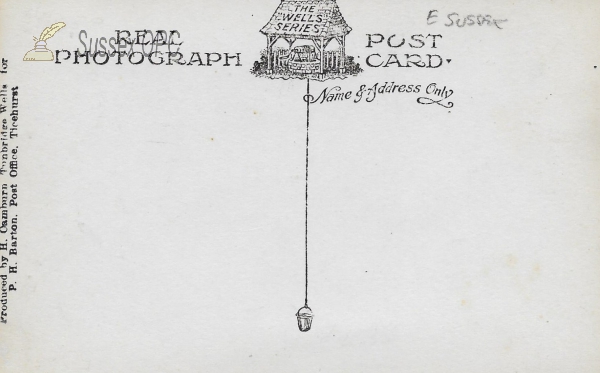 THE
WELLS
SERIES
E SUSSEX
REAL
PHOTOGRAPH
POST
CARD.
SussexOPC
Name & Address Only
Produced by H. Camburn Tunbridge Wells for
P. H. Barton, Post Office, Ticehurst